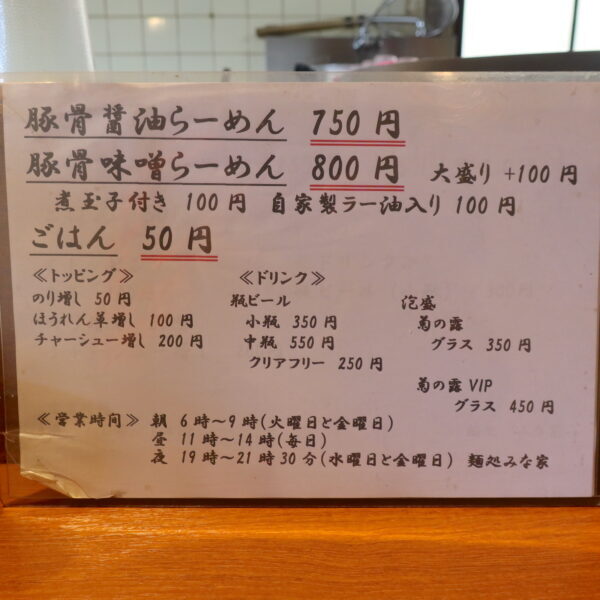 豚骨醤油らーめん 750円
豚骨味噌らーめん 800円 大盛り +100円
煮玉子付き 100円 自家製ラー油入り 100円
ごはん 50円
≪トッピング≫
のり増し 50円
ほうれん草増し 100円
チャーシュー増し 200円
≪ドリンク≫
瓶ビール
小瓶 350円
中瓶 550円
クリアフリー 250円
泡盛
菊の露
グラス 350円
菊の露VIP
グラス 450円
≪営業時間≫ 朝 6時～9時(火曜日と金曜日)
昼 11時～14時(毎日)
夜 19時～21時30分(水曜日と金曜日) 麺処みな家